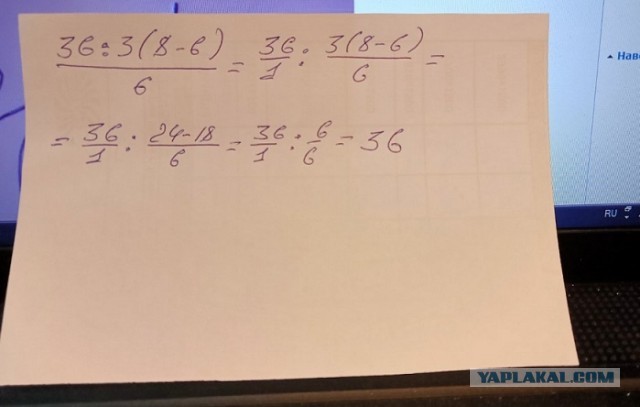 36:3(8-6)/6 = 36/1 : 3(8-6)/6 =
= 36/1 : 24-18/6 = 36/1 : 6/6 = 36
Нав
RU
YAPLAKAL.COM